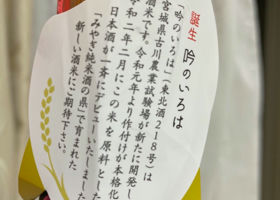 誕生 吟のいろは
「吟のいろは」(東北酒218号)は
宮城県古川農業試験場が新たに開発し
酒米です。令和元年より作付けが本格化
令和二年二月にこの米を原料とした
日本酒が一斉にデビューいたしました
「みやぎ純米酒の県」で育まれた
新しい酒米にご期待下さい。